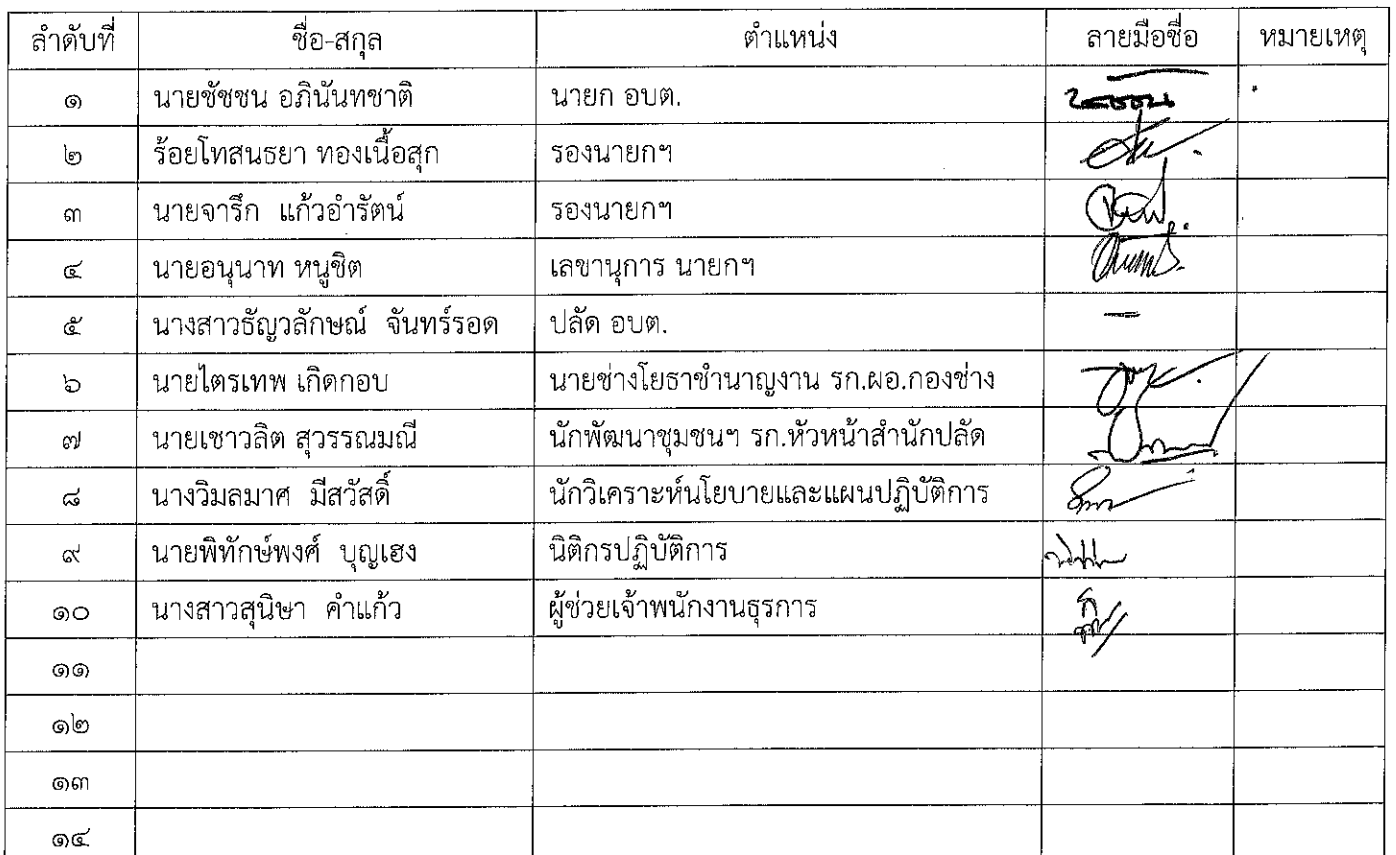 ลำดับที่ ชื่อ-สกุล ตำแหน่ง ลายมือชื่อ หมายเหตุ
๑ นายชัชชน อภินันทชาติ นายก อบต.
๒ ร้อยโทสนธยา ทองเนื้อสุก รองนายกฯ
๓ นายจารึก แก้วอำรัตน์ รองนายกฯ
๔ นายอนุนาท หนูชิต เลขานุการ นายกฯ
๕ นางสาวธัญวลักษณ์ จันทร์รอด ปลัด อบต. –
๖ นายไตรเทพ เกิดกอบ นายช่างโยธาชำนาญงาน รก.ผอ.กองช่าง
๗ นายเชาวลิต สุวรรณมณี นักพัฒนาชุมชนฯ รก.หัวหน้าสำนักปลัด
๘ นางวิมลมาศ มีสวัสดิ์ นักวิเคราะห์นโยบายและแผนปฏิบัติการ
๙ นายพิทักษ์พงศ์ บุญเฮง นิติกรปฏิบัติการ
๑๐ นางสาวสุนิษา คำแก้ว ผู้ช่วยเจ้าพนักงานธุรการ
๑๑
๑๒
๑๓
๑๔